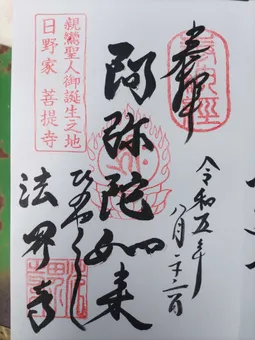 奉拝
令和五年
八月二十二日
阿弥陀如来
親鸞聖人御誕生之地
日野家 菩提寺
ひのやくし
法界寺